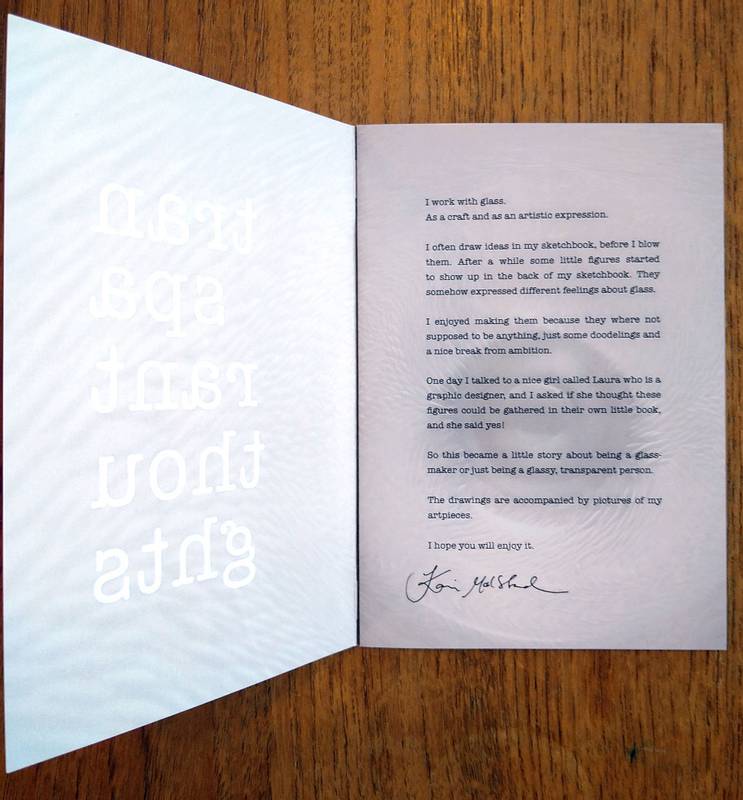 tran
spa
rant
thou
ghts
I work with glass.
As a craft and as an artistic expression.
I often draw ideas in my sketchbook, before I blow
them. After a while some little figures started
to show up in the back of my sketchbook. They
somehow expressed different feelings about glass.
I enjoyed making them because they where not
supposed to be anything, just some doodelings and
a nice break from ambition.
One day I talked to a nice girl called Laura who is a
graphic designer, and I asked if she thought these
figures could be gathered in their own little book,
and she said yes!
So this became a little story about being a glass-
maker or just being a glassy, transparent person.
The drawings are accompanied by pictures of my
artpieces.
I hope you will enjoy it.